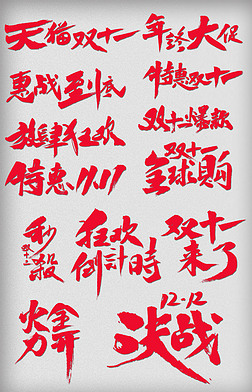 天猫双十一
年终大促
惠战到底
特惠双十一
放肆狂欢
双十二爆款
特惠11.11
双十一
全球购
秒殺
双十二
狂欢
倒計時
双十一
来了
火力
全開
12.12
决战